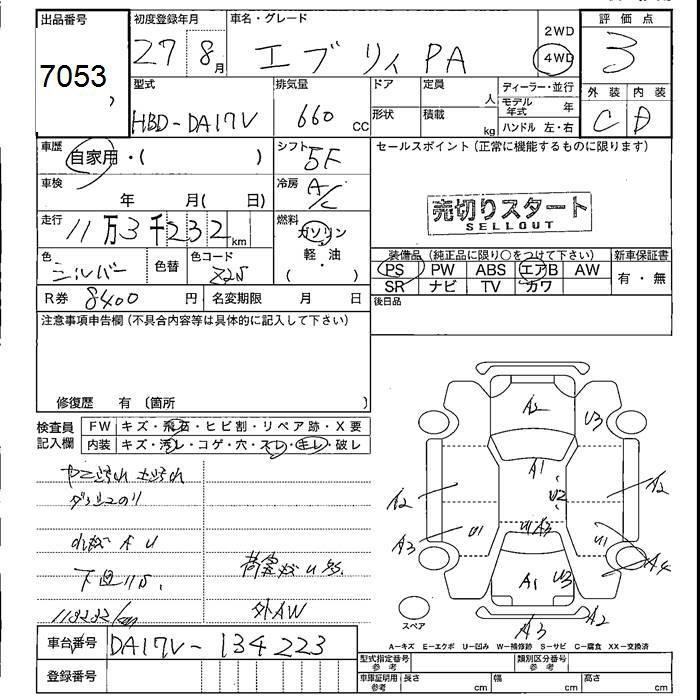 出品番号 初度登録年月 車名・グレード 評価点
7053 27 8月 エブリィ PA 2WD 4WD 3
型式 排気量 ドア 定員 人 ディーラー・並行 外装 内装
HBD-DA17V 660 CC 形状 積載 kg モデル年式 年 C D
ハンドル 左・右
車歴 自家用・( ) シフト 5F セールスポイント(正常に機能するものに限ります)
車検 年 月( 日) 冷房 A/C
売切りスタート
SELLOUT
走行 11万3千232km 燃料 ガソリン 軽・油 ( )
色 シルバー 色替 色コード Z2S
装備品(純正品に限り○をつけて下さい) 新車保証書
PS PW ABS エアB AW 有・無
SR ナビ TV カワ
R券 8400円 名変期限 月 日 後日品
注意事項申告欄(不具合内容等は具体的に記入して下さい)
修復歴 有 〔箇所
検査員記入欄 FW キズ・飛石・ヒビ割・リペア跡・X要
内装 キズ・汚レ・コゲ・穴・スレ・キレ・破レ
下回サビ
113232/km
外AW
車台番号 DA17V-134223
登録番号
A2 U3
A1
U2
A2 A2
U1 A3
A3 U1 U1
A4
A1 U3
A3 A2
スペア
A-キズ E-エクボ U-凹み W-補修跡 S-サビ C-腐食 XX-交換済
型式指定番号 参考 類別区分番号 参考
車庫証明用 参考 長さ cm 幅 cm 高さ cm